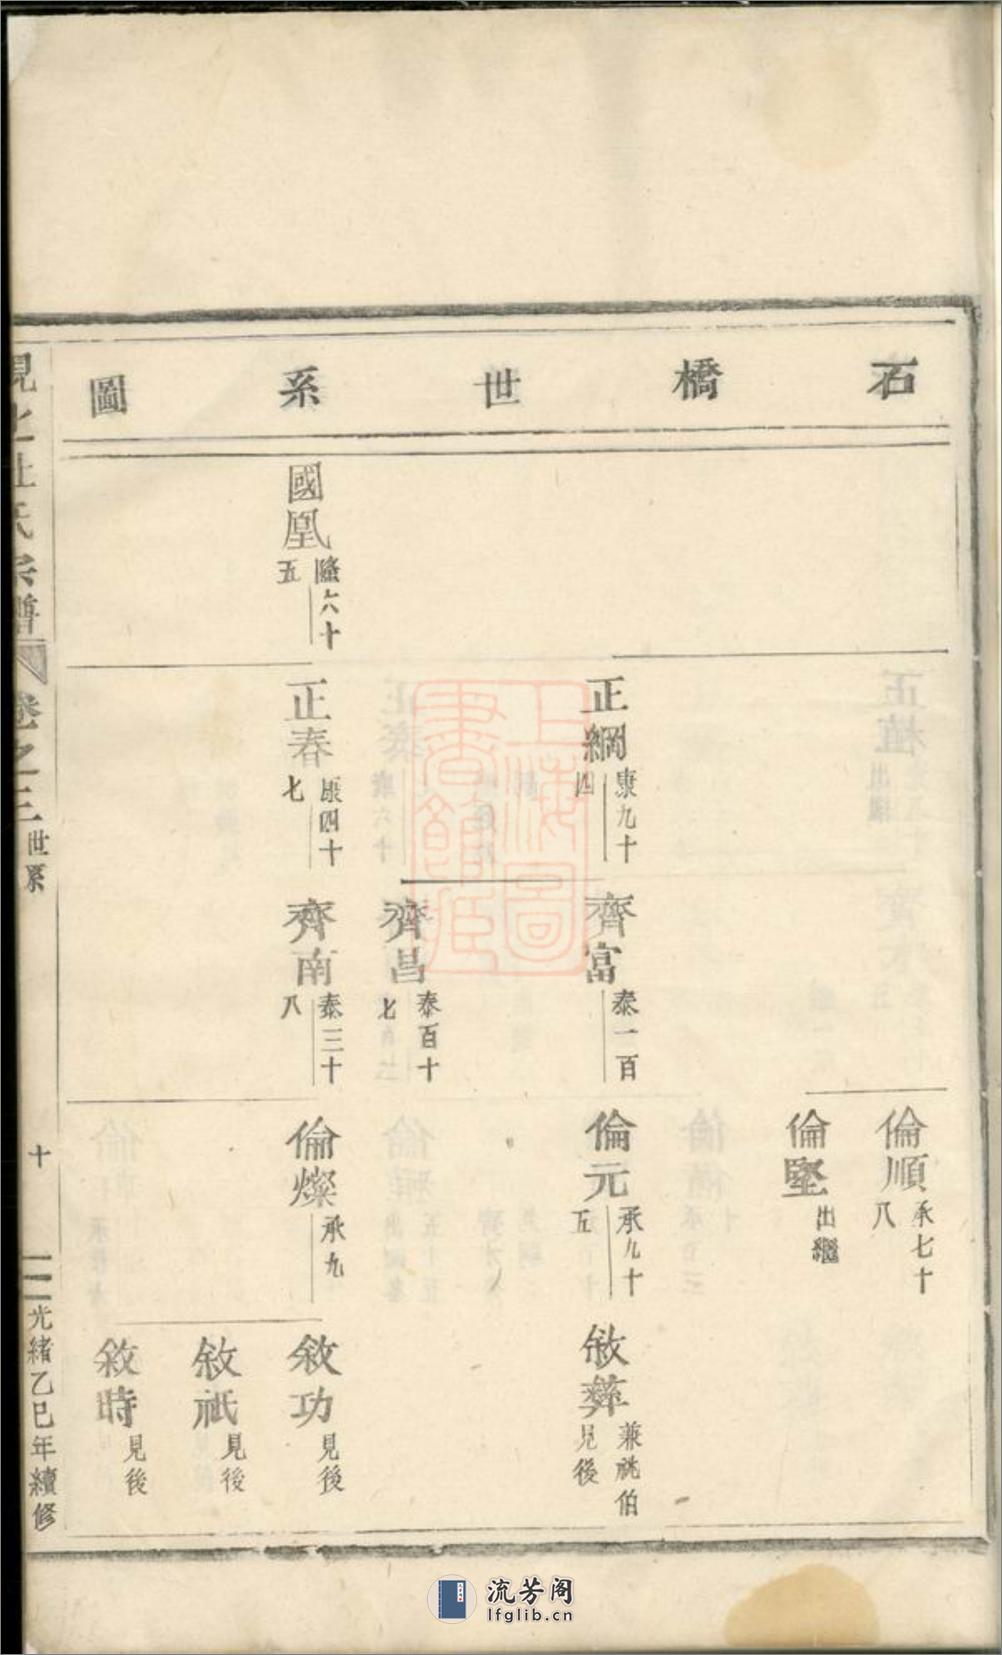 石橋世系圖
國凰 隆六十五
正綱 康九十四
正春 康四十七
齊富 泰一百
齊昌 泰百十七
齊南 泰三十八
倫順 承七十八
倫堅 出繼
倫元 承九十五
倫燦 承九
敘彝 兼祧伯見後
敘功 見後
敘祇 見後
敘時 見後
氏宗譜
卷之三 世系
十
光緒乙巳年續修
上海圖書館藏
流芳阁
lfglib.cn